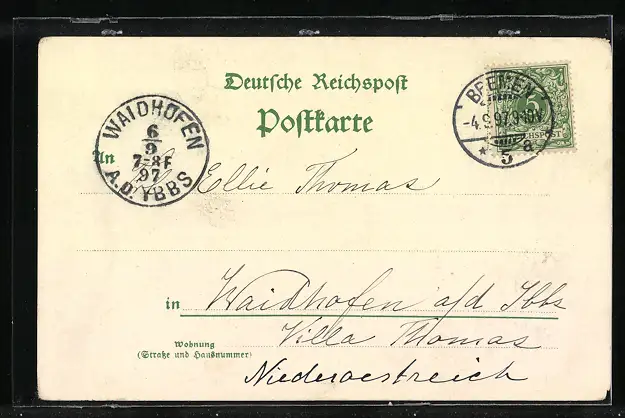 Deutsche Reichspost
Postkarte
WAIDHOFEN
6
9
7-8F
97
A.D. YBBS
BREMEN
-4.9.97.9-10V.
* 5 a
REICHSPOST
An
Ellie Thomas
in Waidhofen a/d Ybbs
Wohnung
(Straße und Hausnummer)
Villa Thomas
Niederoestreich